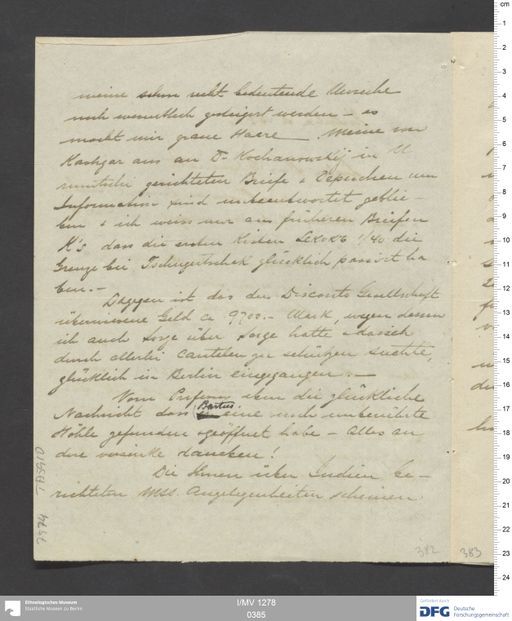 meine schon recht bedeutende Unruhe
noch wesentlich gesteigert werden – es
macht mir graue Haare. Meine von
Kashgar aus an Dr. Kochanowskij in U
rumtschi gerichteten Briefe & Depeschen um
Information sind unbeantwortet geblie-
ben & ich weiss nur aus früheren Briefen
K's, dass die ersten Kisten 1/40 die
Grenze bei Tschugutschak glücklich passirt ha
ben. –
Dagegen ist das der Disconto Gesellschaft
überwiesene Geld ca 9700.– Mark wegen dessen
ich auch Sorge über Sorge hatte & das ich
durch allerlei Cautelen zu schützen suchte,
glücklich in Berlin eingegangen. –
Vom eben die glückliche
Nachricht dass Bartus eine noch unberührte
Höhle gefunden & geöffnet habe – Alles an
dere versank daneben!
Die Ihnen über Indien be-
richteten MSS. Angelegenheiten scheinen
TA 5910
7974
382
383
Ethnologisches Museum
Staatliche Museen zu Berlin
I/MV 1278
0385
Gefördert durch
DFG Deutsche
Forschungsgemeinschaft
cm
1
2
3
4
5
6
7
8
9
10
11
12
13
14
15
16
17
18
19
20
21
22
23
24